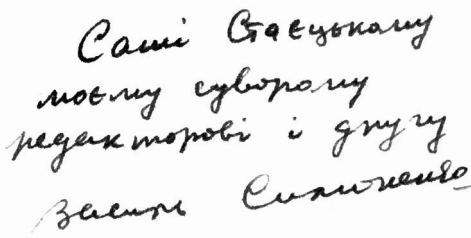 Саші Стаєцькому
моєму суворому
редакторові і другу
Василь Симоненко